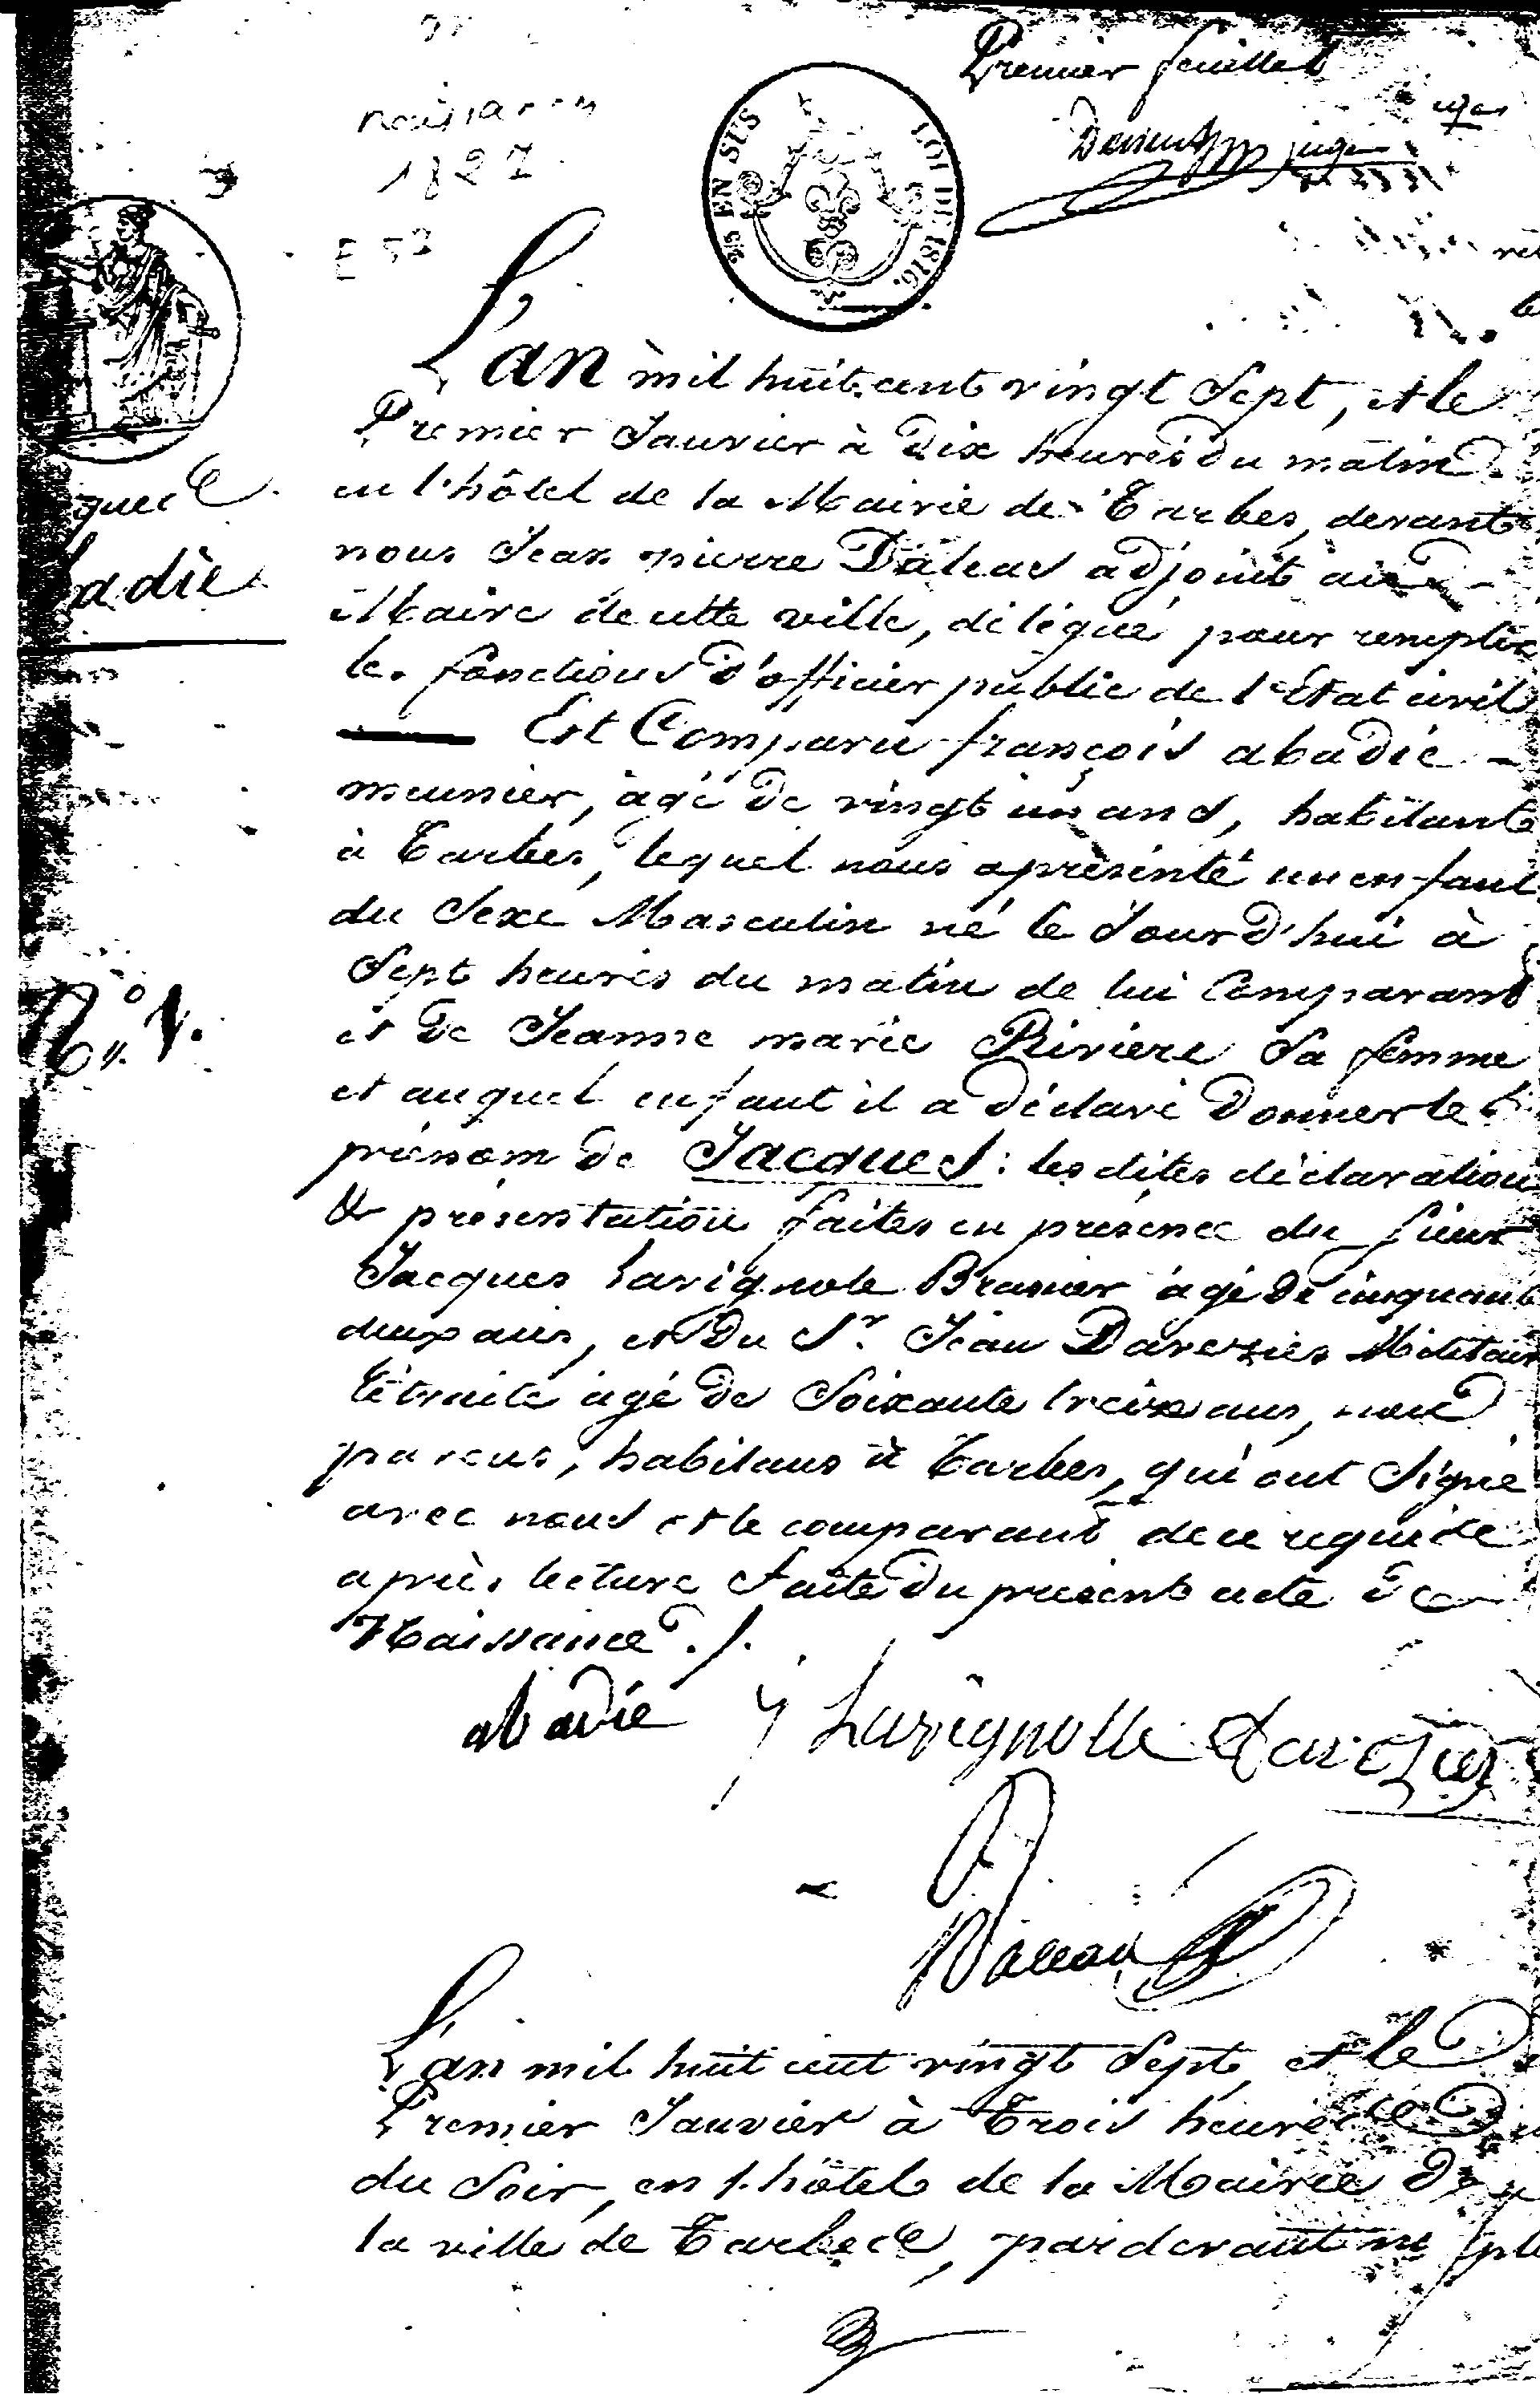 Premier feuillet
juge
naissances
1827
E 53
2/5 EN SUS
LOI DE 1816.
L'an mil huit cent vingt Sept, et le
Premier Janvier à Dix heures du matin
en l'hôtel de la Mairie de Tarbes, devant
nous Jean pierre Daleas adjoint au
Maire de cette ville, délégué pour remplir
les fonctions d'officier public de l'Etat civil
Est Comparu françois abadie
meunier, âgé de vingt un ans, habitant
à Tarbes, lequel nous a présenté un enfant
du Sexe Masculin né le Jourd'hui à
Sept heures du matin de lui Comparant
et de Jeanne marie Riviere Sa femme
et auquel enfant il a déclaré Donner le
prénom de Jacques : les dites déclaration
& présentation faites en présence du sieur
Jacques Lavignole Brasier âgé de cinquante
deux ans, et Du Sr. Jean Darezies Militaire
retraité âgé de Soixante treize ans, non
parens, habitans à Tarbes, qui ont Signé
avec nous et le comparant de ce requide
après lecture faite du present acte de
Naissance ./.
abadie J Lavignolle Darezies
Daleas
gues
badie
N.o 1.
L'an mil huit cent vingt Sept, et le
Premier Janvier à Trois heures
du Soir, en l'hôtel de la Mairie De
la ville de Tarbes, pardevant